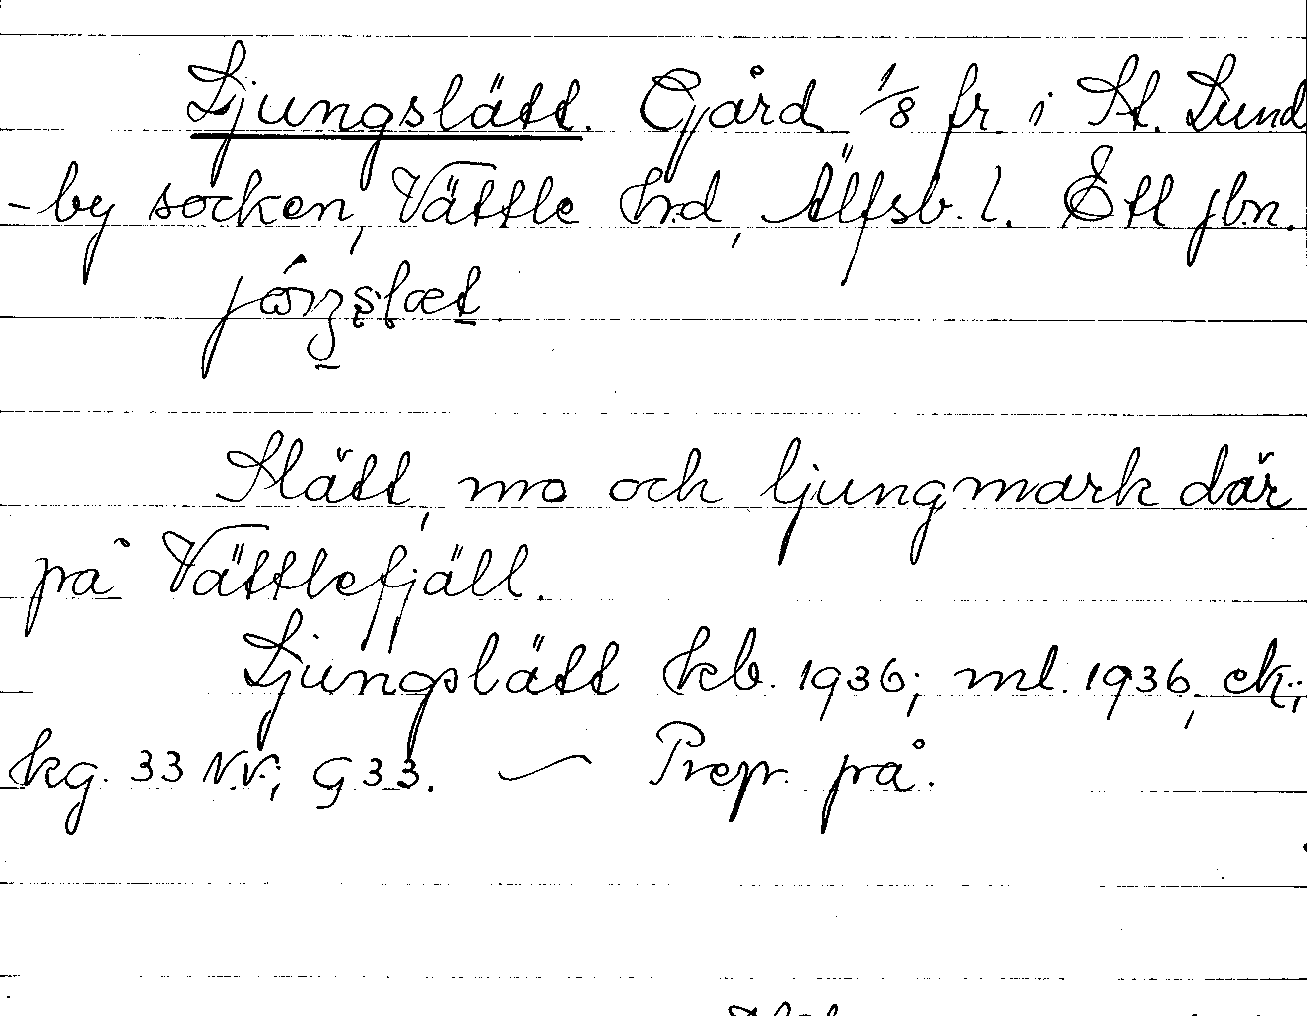 Ljungslätt. Gård 1/8 fr. i St. Lund
-by socken, Vättle hrd, Älfsb. l. Ett jbn.
Slätt, mo och ljungmark där
på Vättlefjäll.
Ljungslätt kb. 1936; ml. 1936, ek.;
kg. 33 NV; G33. — Prep. på.